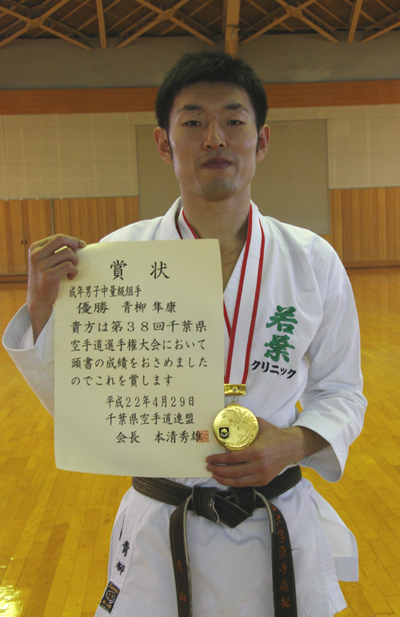 賞状
成年男子中量級組手
優勝 青柳 隼康
貴方は第38回千葉県
空手道選手権大会において
頭書の成績をおさめました
のでこれを賞します
平成22年4月29日
千葉県空手道連盟
会長 本清秀雄
若葉
クリニック
青柳